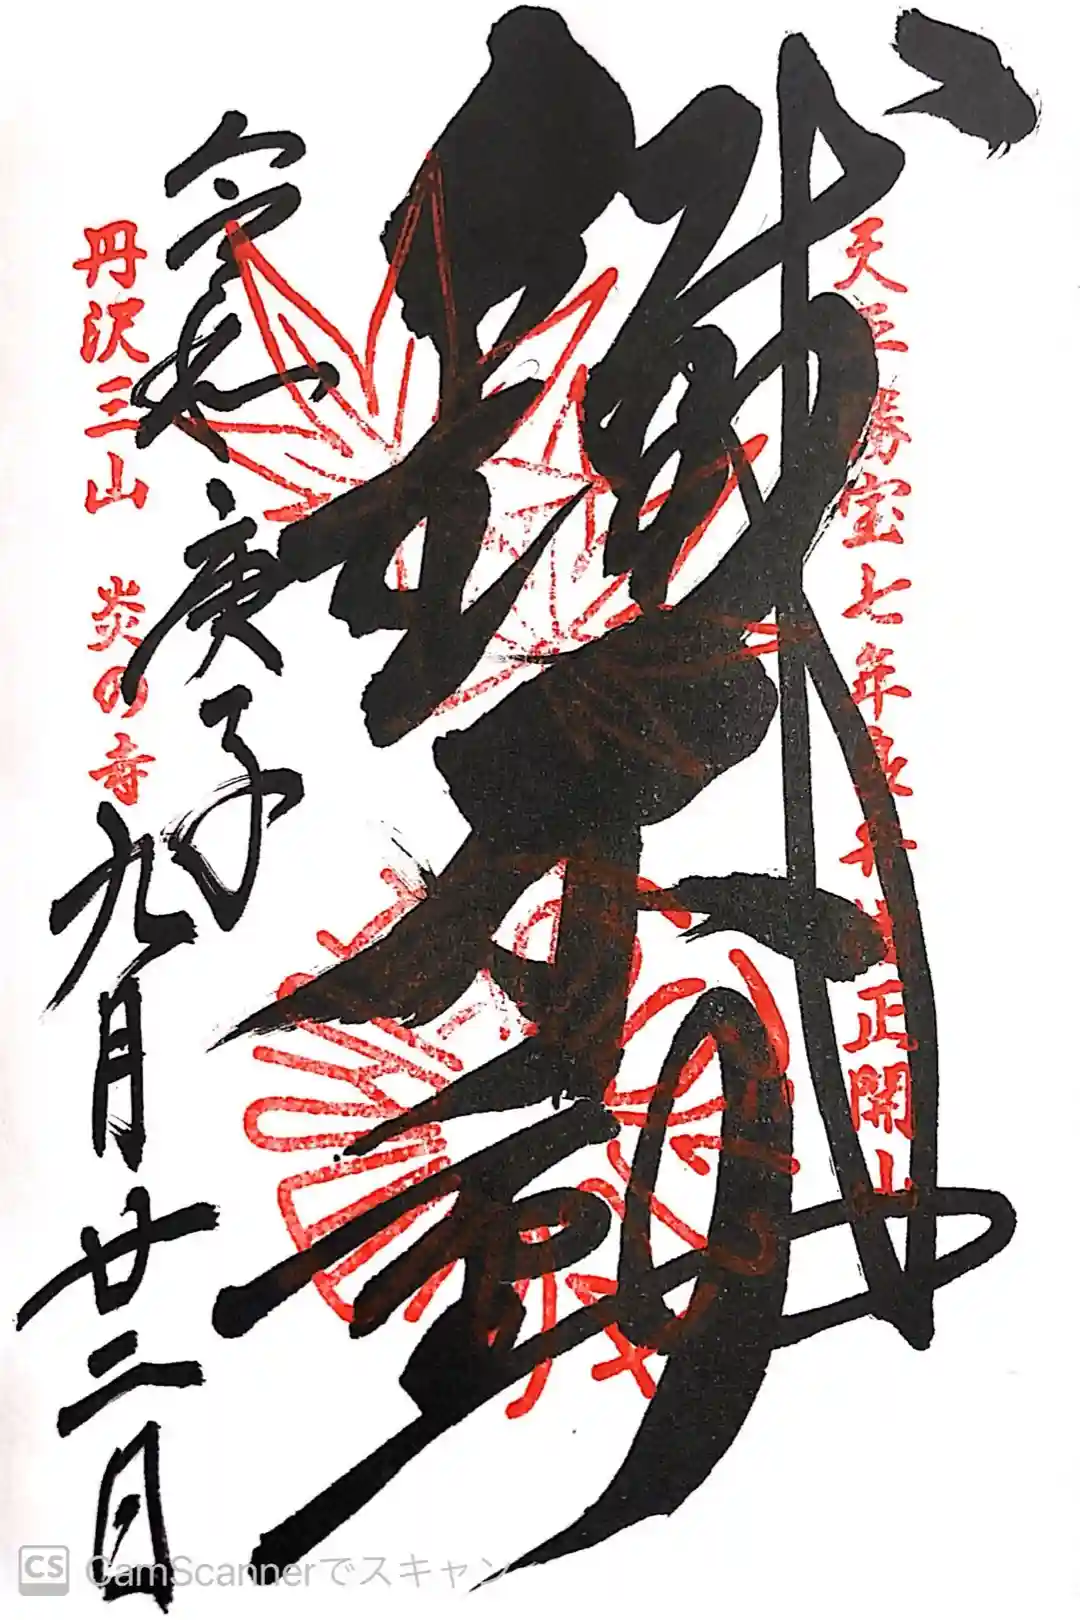 天平勝宝七年良弁僧正開山
鐵不動
庚子九月廿二日
丹沢三山 炎の寺
CS CamScannerでスキャン